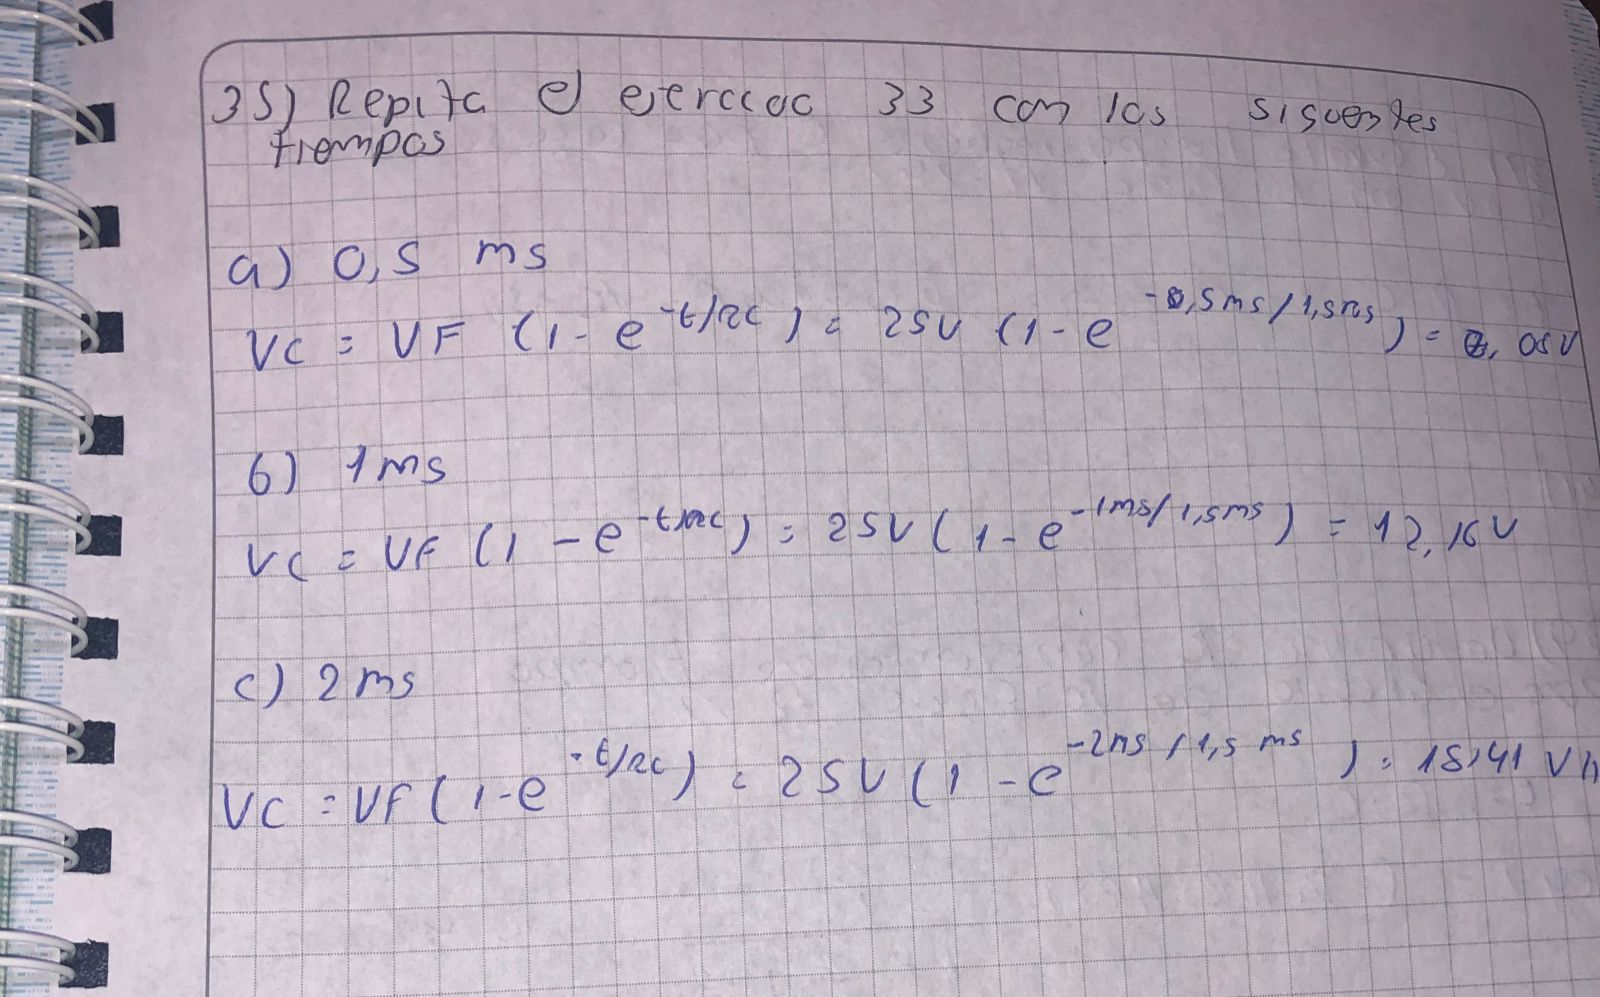 35) Repita el ejercicio 33 con los siguentes
tiempos
a) 0,5 ms
VC = VF (1 - e^-t/RC) = 25V (1 - e^-0,5ms/1,5ms) = 8,05V
b) 1ms
VC = VF (1 - e^-t/RC) = 25V (1 - e^-1ms/1,5ms) = 12,16V
c) 2ms
VC = VF (1-e^-t/RC) = 25V (1 - e^-2ms/1,5 ms) = 18,41 V